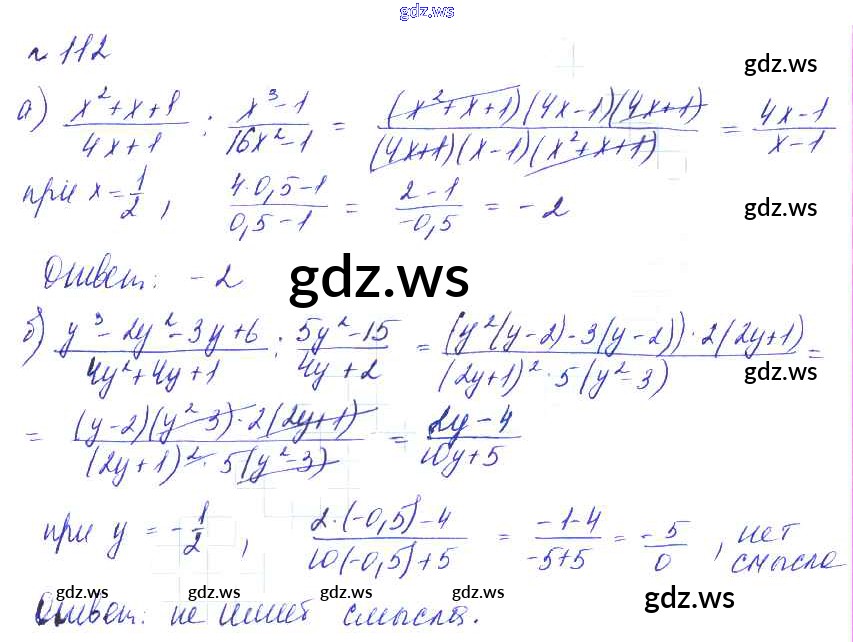 gdz.ws
№ 112
gdz.ws
а) (x² + x + 1)/(4x + 1) : (x³ - 1)/(16x² - 1) = ((x² + x + 1)(4x - 1)(4x + 1))/((4x + 1)(x - 1)(x² + x + 1)) = (4x - 1)/(x - 1)
при x = 1/2, (4·0,5 - 1)/(0,5 - 1) = (2 - 1)/(-0,5) = -2
gdz.ws
Ответ: -2
gdz.ws
б) (y³ - 2y² - 3y + 6)/(4y² + 4y + 1) : (5y² - 15)/(4y + 2) = ((y²(y - 2) - 3(y - 2))·2(2y + 1))/((2y + 1)²·5(y² - 3)) =
gdz.ws
= ((y - 2)(y² - 3)·2(2y + 1))/((2y + 1)²·5(y² - 3)) = (2y - 4)/(10y + 5)
при y = -1/2, (2·(-0,5) - 4)/(10(-0,5) + 5) = (-1 - 4)/(-5 + 5) = -5/0, нет смысла
gdz.ws gdz.ws gdz.ws gdz.ws
Ответ: не имеет смысла.